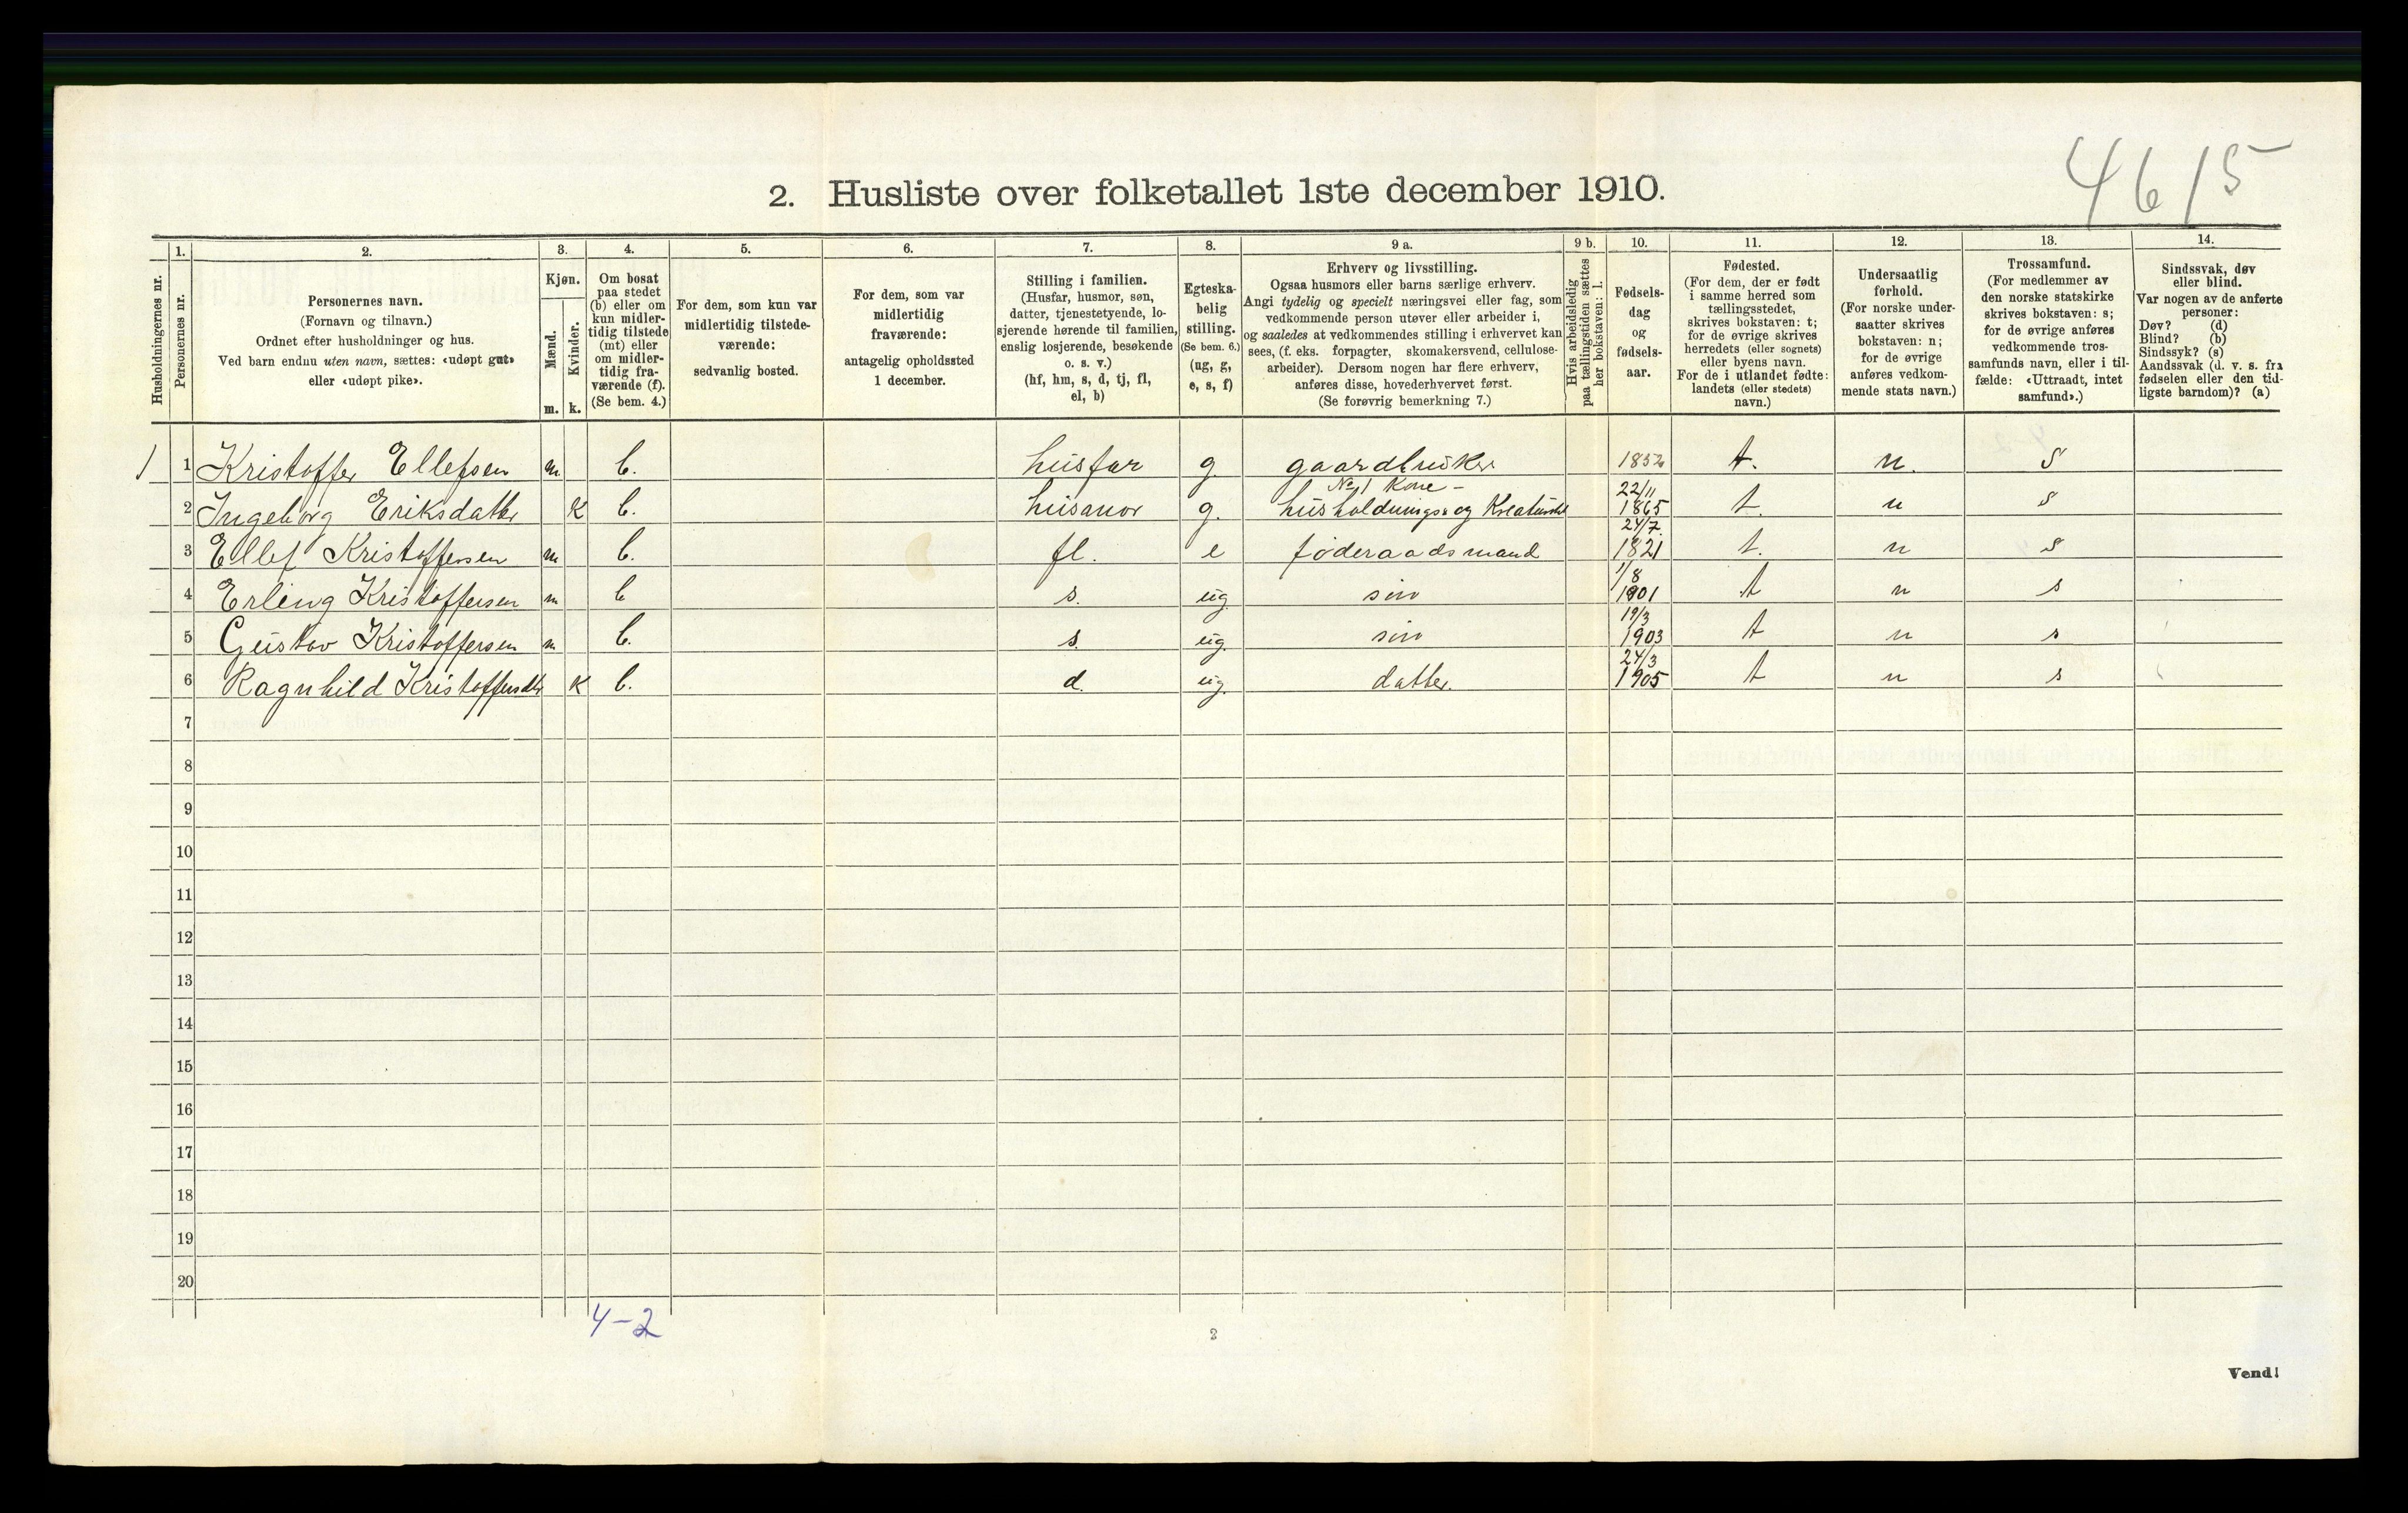 4615
2. Husliste over folketallet 1ste december 1910.
Husholdningernes nr.
1.
Personernes nr.
2.
Personernes navn.
(Fornavn og tilnavn.)
Ordnet efter husholdninger og hus.
Ved barn endnu uten navn, sættes: «udøpt gut»
eller «udøpt pike».
3.
Kjøn.
Mænd.
Kvinder.
m. k.
4.
Om bosat
paa stedet
(b) eller om
kun midler-
tidig tilstede
(mt) eller
om midler-
tidig fra-
værende (f).
(Se bem. 4.)
5.
For dem, som kun var
midlertidig tilstede-
værende:
sedvanlig bosted.
6.
For dem, som var
midlertidig
fraværende:
antagelig opholdssted
1 december.
7.
Stilling i familien.
(Husfar, husmor, søn,
datter, tjenestetyende, lo-
sjerende hørende til familien,
enslig losjerende, besøkende
o. s. v.)
(hf, hm, s, d, tj, fl,
el, b)
8.
Egteska-
belig
stilling.
(Se bem. 6.)
(ug, g,
e, s, f)
9 a.
Erhverv og livsstilling.
Ogsaa husmors eller barns særlige erhverv.
Angi tydelig og specielt næringsvei eller fag, som
vedkommende person utøver eller arbeider i,
og saaledes at vedkommendes stilling i erhvervet kan
sees, (f. eks. forpagter, skomakersvend, cellulose-
arbeider). Dersom nogen har flere erhverv,
anføres disse, hovederhvervet først.
(Se forøvrig bemerkning 7.)
9 b.
Hvis arbeidsledig
paa tællingstiden sættes
her bokstaven: l.
10.
Fødsels-
dag
og
fødsels-
aar.
11.
Fødested.
(For dem, der er født
i samme herred som
tællingsstedet,
skrives bokstaven: t;
for de øvrige skrives
herredets (eller sognets)
eller byens navn.
For de i utlandet fødte:
landets (eller stedets)
navn.)
12.
Undersaatlig
forhold.
(For norske under-
saatter skrives
bokstaven: n;
for de øvrige
anføres vedkom-
mende stats navn.)
13.
Trossamfund.
(For medlemmer av
den norske statskirke
skrives bokstaven: s;
for de øvrige anføres
vedkommende tros-
samfunds navn, eller i til-
fælde: «Uttraadt, intet
samfund».)
14.
Sindssvak, døv
eller blind.
Var nogen av de anførte
personer:
Døv? (d)
Blind? (b)
Sindssyk? (s)
Aandssvak (d. v. s. fra
fødselen eller den tid-
ligste barndom)? (a)
1 1 Kristoffer Ellefsen m b. husfar g gaardbruker 1852 t. n. s
No 1 Kone - 22/11
2 Ingeborg Eriksdatter K b. husmor g. husholdnings- og Kreaturstel 1865 t. n s
24/7
3 Ellef Kristoffersen m b. fl. e føderaadsmand 1821 t. n s
1/8
4 Erling Kristoffersen m b s. ug. søn 1901 t n s
19/3
5 Gustav Kristoffersen m b. s. ug. søn 1903 t n s
24/3
6 Ragnhild Kristoffersdtr K b. d. ug. datter. 1905 t n s
7
8
9
10
11
12
13
14
15
16
17
18
19
20
4-2
2
Vend!